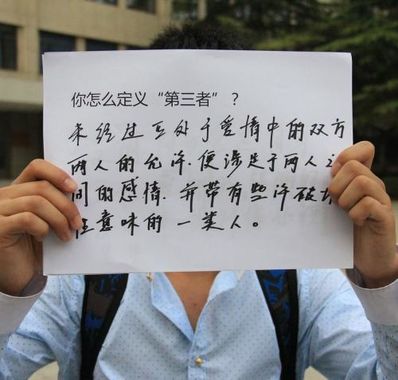 你怎么定义“第三者”？
未经过互处于爱情中的双方
两人的允许.便涉足于两人之
间的感情.并带有些许破坏
性意味的一类人。